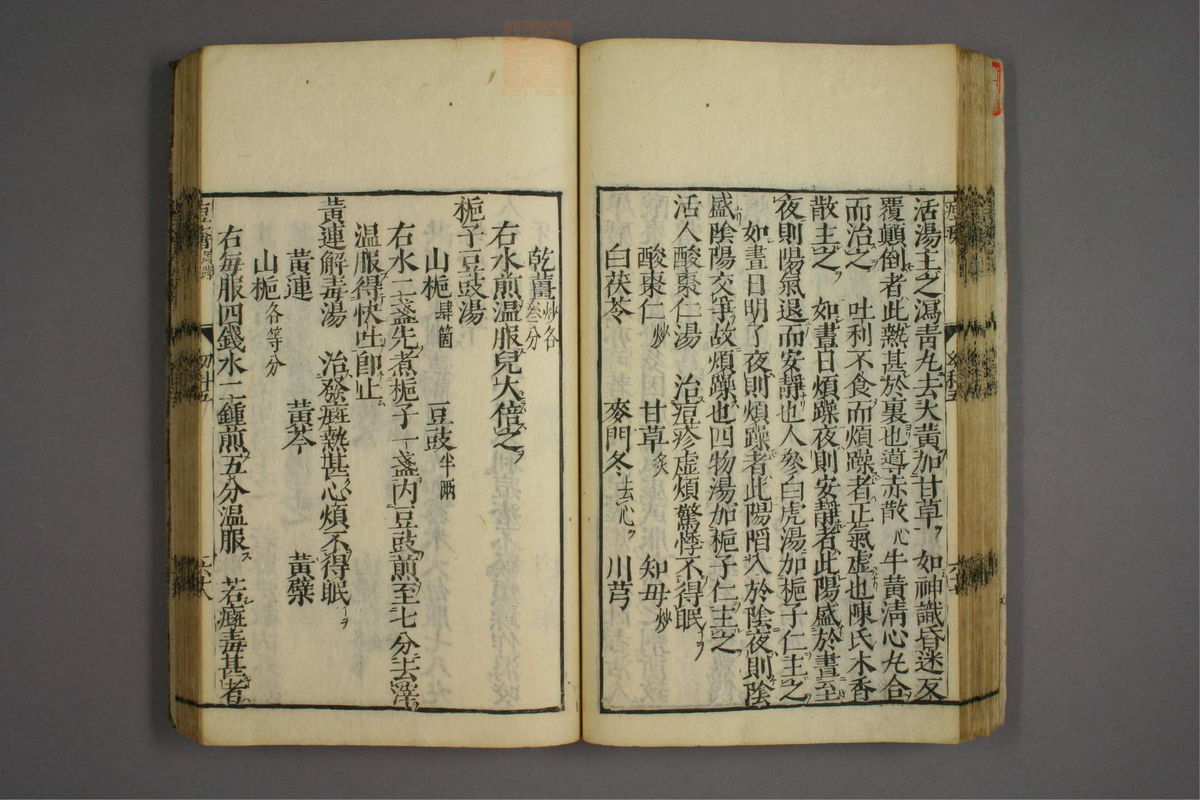 活湯主之瀉青丸去大黄加甘草 如神識昏迷反
覆顛倒者此熱甚於裏也導赤散心牛黄清心丸合
而治之 吐利不食而煩躁者正氣虚也陳氏木香
散主之 如晝日煩躁夜則安靜者此陽盛於晝至
夜則陽氣退而安靜也人參白虎湯加梔子仁主之
如晝日明了夜則煩躁者此陽陷入於陰夜則陰
盛陰陽交爭故煩躁也四物湯加梔子仁主之
活人酸棗仁湯 治痘疹虚煩驚悸不得眠
酸棗仁炒 甘草炙 知母炒
白茯苓 麥門冬去心 川芎
乾薑炒各叁分
右水煎温服兒大倍之
梔子豆豉湯
山梔肆箇 豆豉半兩
右水二盞先煮梔子一盞内豆豉煎至七分去滓
温服得快吐即止
黄連解毒湯 治發癍熱甚心煩不得眠
黄連 黄芩 黄檗
山梔各等分
右毎服四錢水一鍾煎五分温服 若癍毒甚者